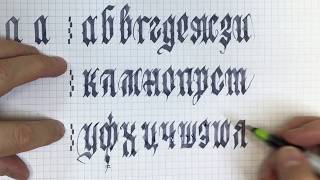 а а абвггдежзи
клмнопрст
уфхцчшэюя